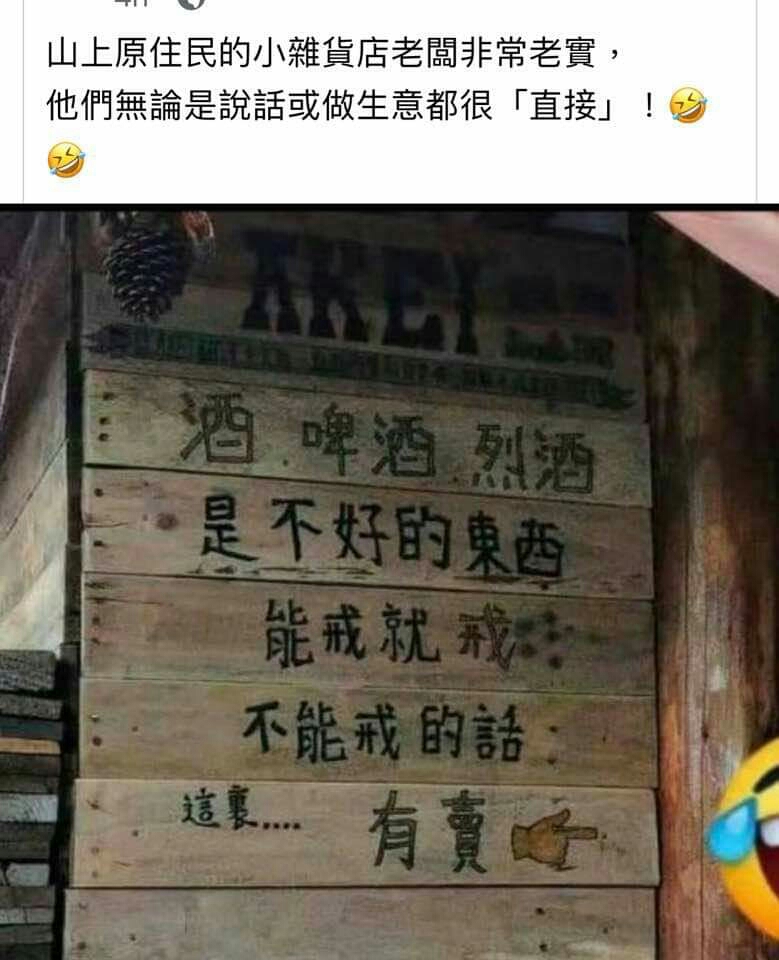 山上原住民的小雜貨店老闆非常老實，
他們無論是說話或做生意都很「直接」！🤣
🤣
AKEY
酒.啤酒.烈酒
是不好的東西
能戒就戒
不能戒的話
這裏.... 有賣